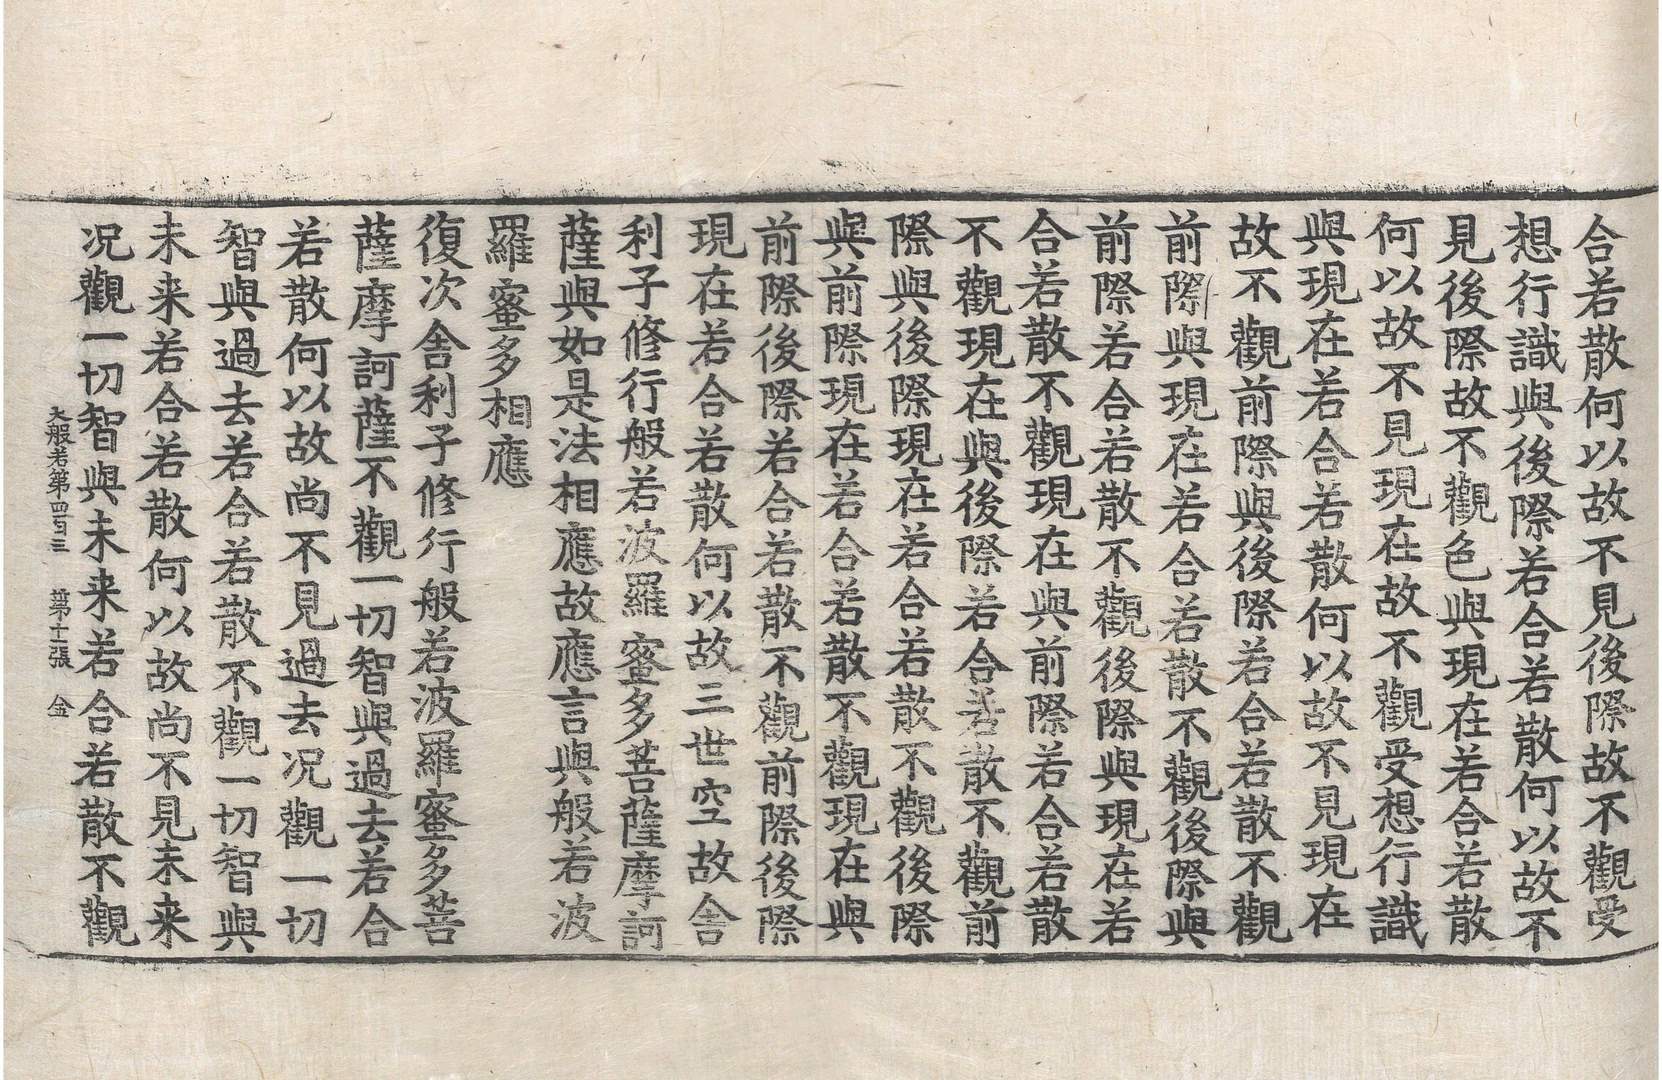 合若散何以故不見後際故不觀受
想行識與後際若合若散何以故不
見後際故不觀色與現在若合若散
何以故不見現在故不觀受想行識
與現在若合若散何以故不見現在
故不觀前際與後際若合若散不觀
前際與現在若合若散不觀後際與
前際若合若散不觀後際與現在若
合若散不觀現在與前際若合若散
不觀現在與後際若合若散不觀前
際與後際現在若合若散不觀後際
與前際現在若合若散不觀現在與
前際後際若合若散不觀前際後際
現在若合若散何以故三世空故舍
利子修行般若波羅蜜多菩薩摩訶
薩與如是法相應故應言與般若波
羅蜜多相應
復次舍利子修行般若波羅蜜多菩
薩摩訶薩不觀一切智與過去若合
若散何以故尚不見過去况觀一切
智與過去若合若散不觀一切智與
未来若合若散何以故尚不見未来
况觀一切智與未来若合若散不觀
大般若第四百三 第十張 金